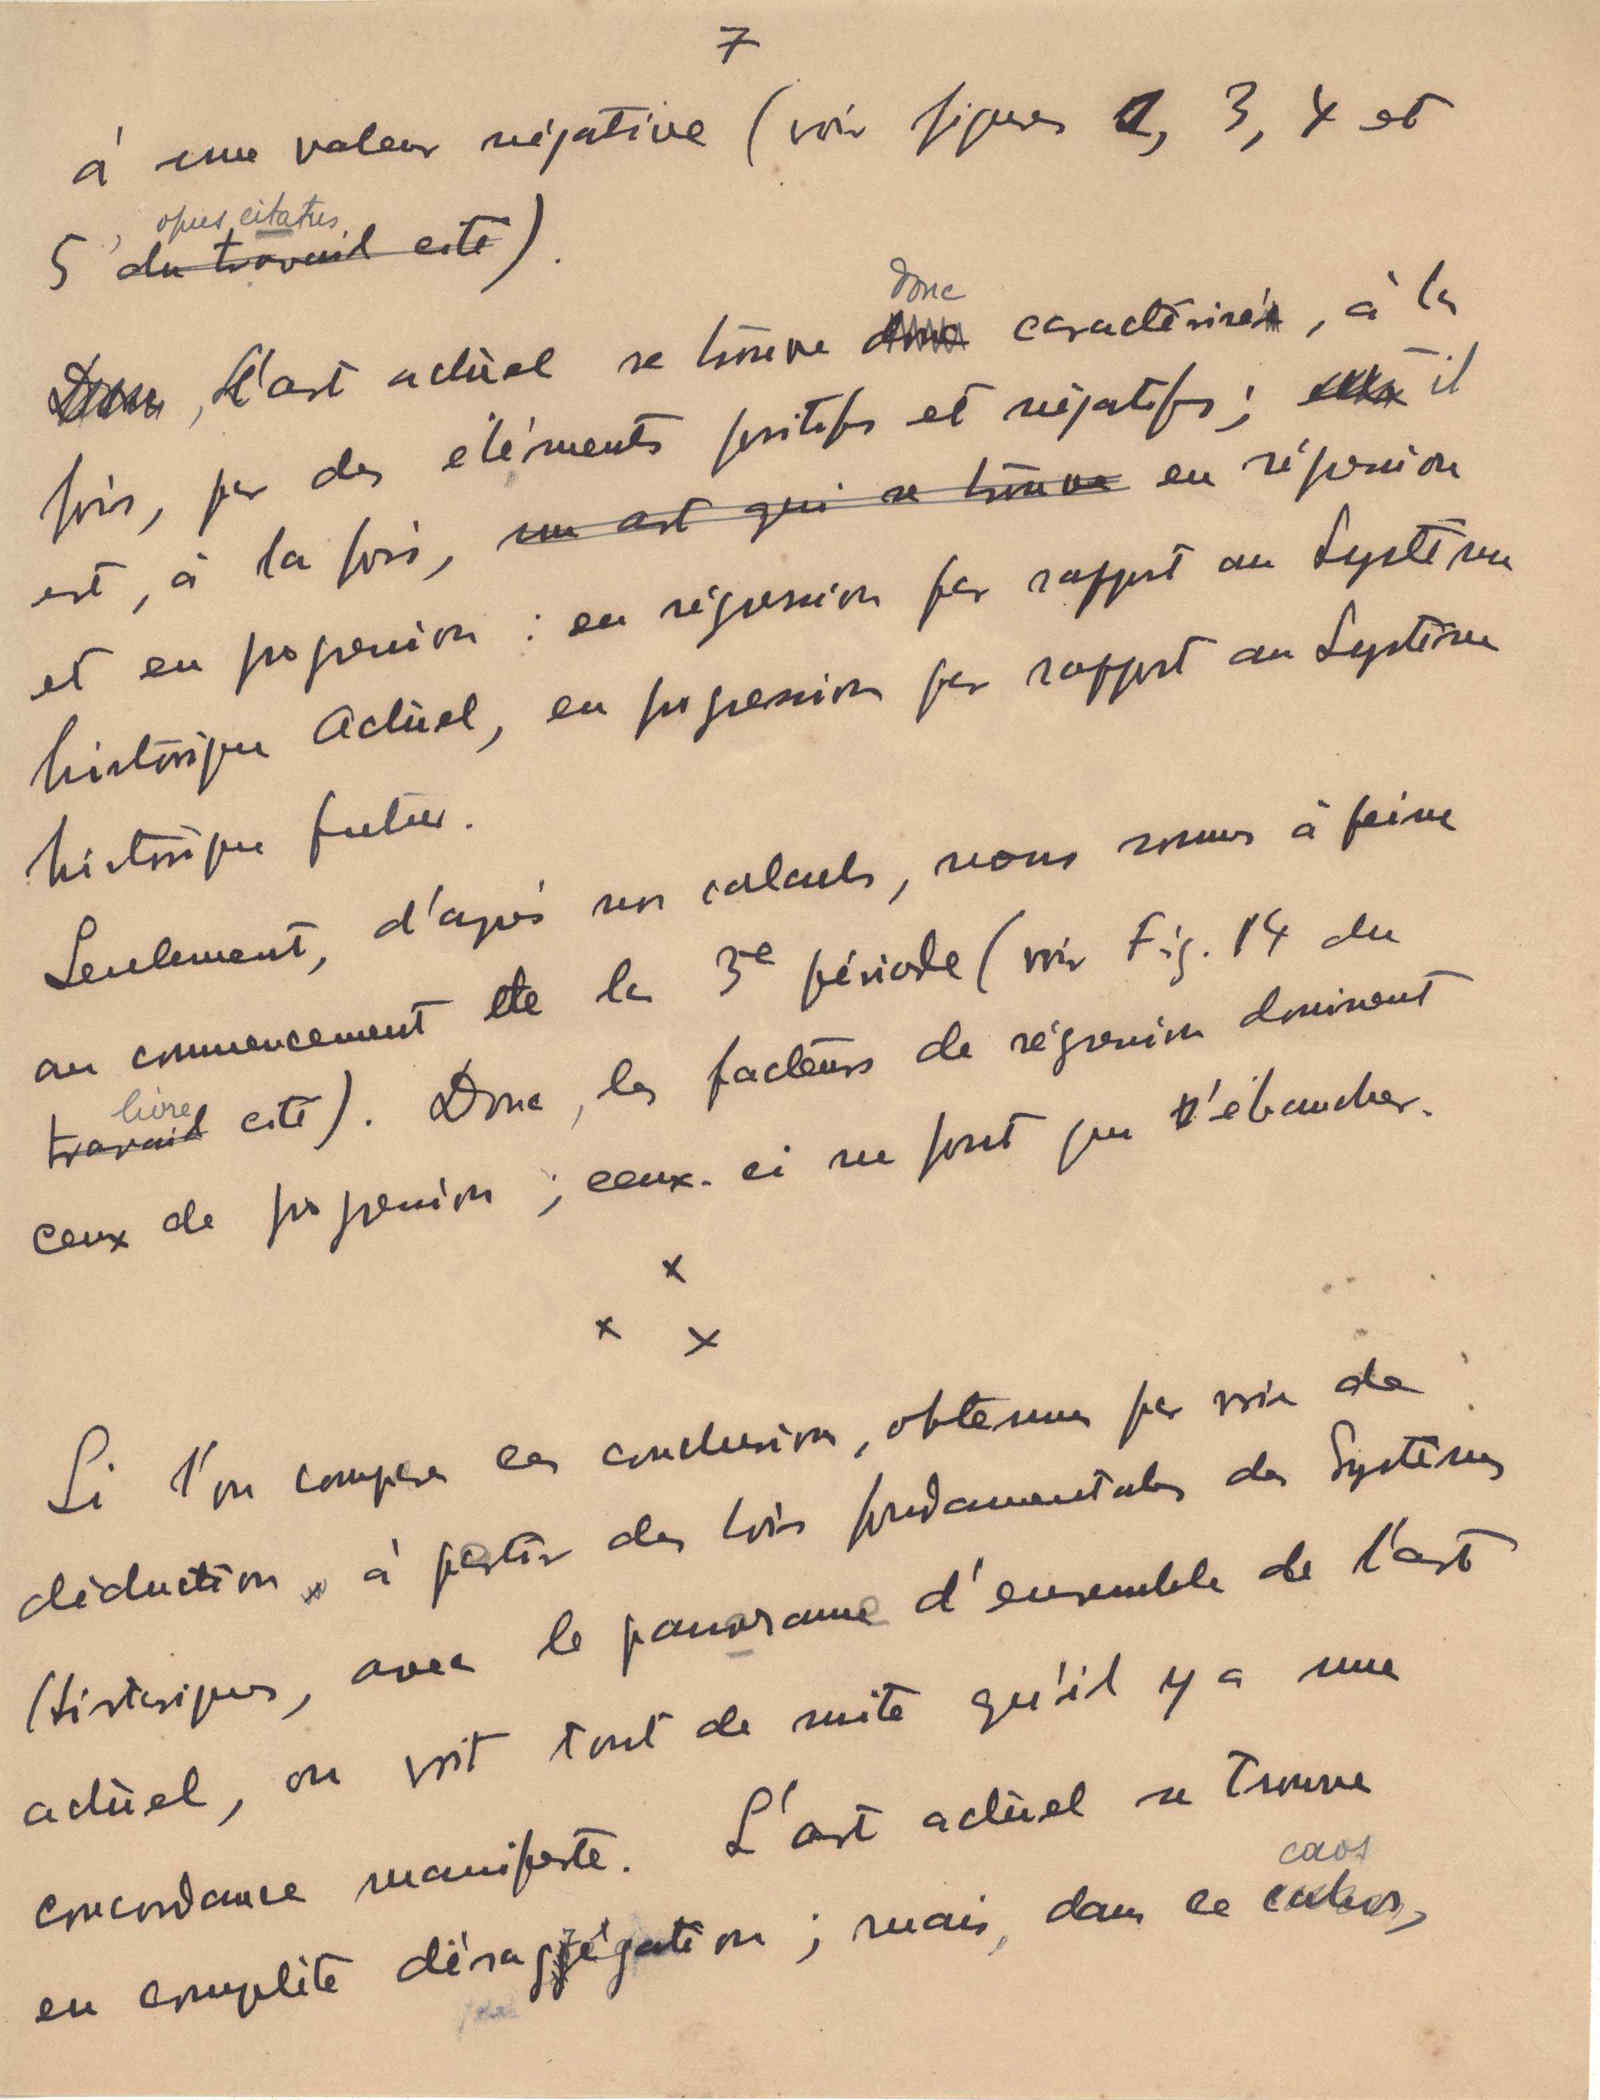 7
à une valeur négative (voir figures 2, 3, 4 et
opus citatus
5, du travail cité).
donc
Donc, L'art actuel se trouve donc caractérisé, à la
fois, par des éléments positifs et négatifs; il
est, à la fois, un art qui se trouve en régression
et en progression : en régression par rapport au Système
historique Actuel, en progression par rapport au Système
historique futur.
Seulement, d'après nos calculs, nous sommes à peine
au commencement de la 3e période (voir Fig. 14 du
livre
travail cité). Donc, les facteurs de régression dominent
ceux de progression ; ceux-ci ne font que s'ébaucher.
x
x x
Si l'on compare ces conclusions, obtenues par voie de
déduction, à partir des lois fondamentales des Systèmes
Historiques, avec le panorama d'ensemble de l'art
actuel, on voit tout de suite qu'il y a une
concordance manifeste. L'art actuel se trouve
caos
en complète désagrégation ; mais, dans ce cahos,